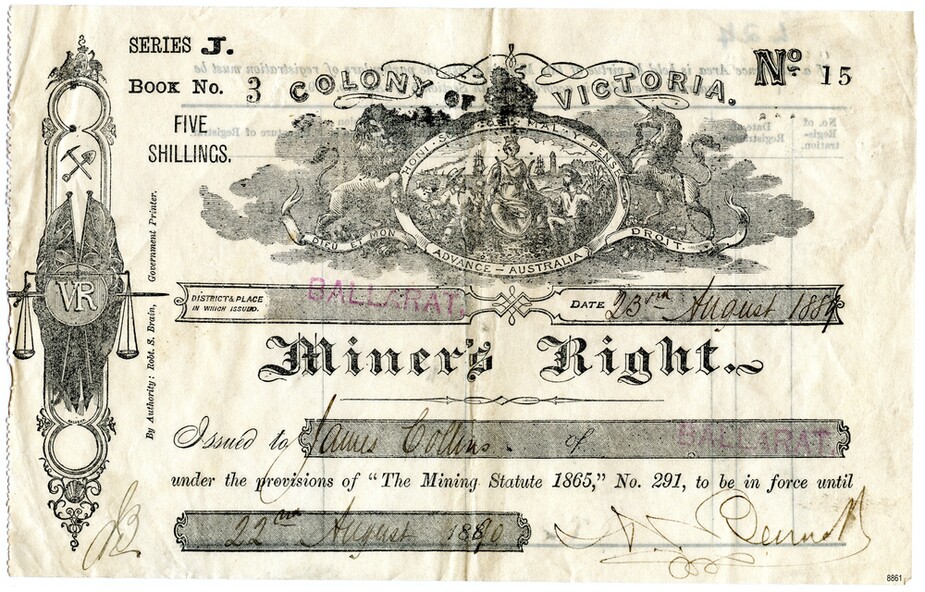 SERIES J.
Book No. 3
COLONY OF VICTORIA.
No 15
FIVE
SHILLINGS.
HONI · S
MAL · Y · PENSE
DIEU ET MON
DROIT.
ADVANCE – AUSTRALIA
VR
By Authority: Robt. S. Brain, Government Printer.
DISTRICT & PLACE
IN WHICH ISSUED.
BALLARAT.
DATE 23rd August 1889
Miner's Right.
Issued to James Collins. of BALLARAT.
under the provisions of “The Mining Statute 1865,” No. 291, to be in force until
22nd August 1890
8861